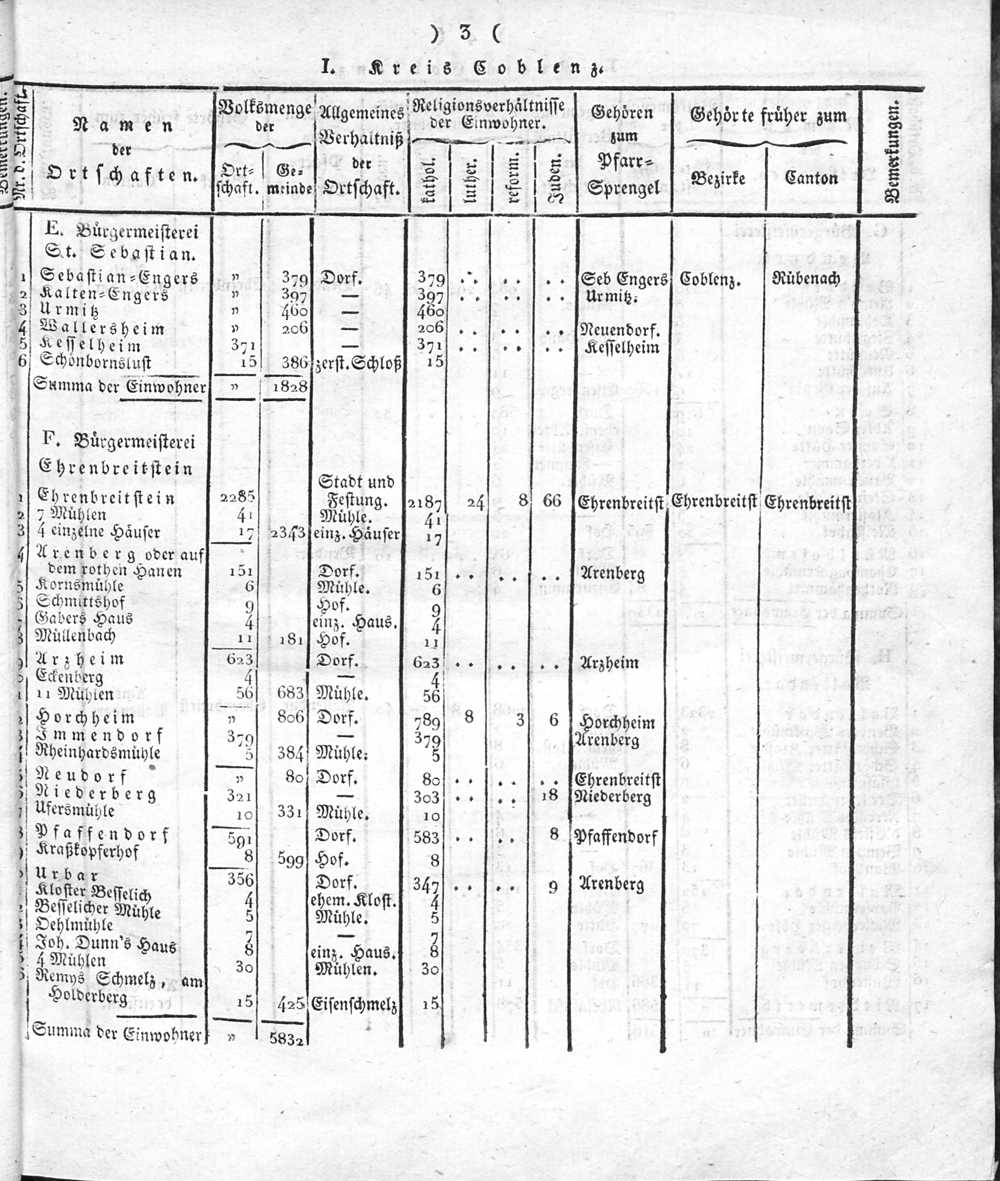 ) 3 (
I. Kreis Coblenz.
Bemerkungen.
Nr. d. Ortschaft.
Namen der Ortschaften.
Volksmenge der
Ort-schaft.
Ge-meinde
Allgemeines Verhältniß der Ortschaft.
Religionsverhältnisse der Einwohner.
kathol.
luther.
reform.
Juden.
Gehören zum Pfarr-Sprengel
Gehörte früher zum
Bezirke
Canton
Bemerkungen.
E. Bürgermeisterei
St. Sebastian.
1 Sebastian-Engers „ 379 Dorf. 379 .. .. .. Seb Engers Coblenz. Rübenach
2 Kalten-Engers „ 397 — 397 .. .. .. Urmitz.
3 Urmitz „ 460 — 460
4 Wallersheim „ 206 — 206 .. .. .. Neuendorf.
5 Kesselheim 371 — 371 .. .. .. Kesselheim
6 Schönbornslust 15 386 zerst. Schloß 15
Summa der Einwohner „ 1828
F. Bürgermeisterei
Ehrenbreitstein
1 Ehrenbreitstein 2285 Stadt und Festung. 2187 24 8 66 Ehrenbreitst Ehrenbreitst Ehrenbreitst
2 7 Mühlen 41 Mühle. 41
3 4 einzelne Häuser 17 2343 einz. Häuser 17
4 Arenberg oder auf
dem rothen Hanen 151 Dorf. 151 .. .. .. Arenberg
5 Kornsmühle 6 Mühle. 6
Schmittshof 9 Hof. 9
Gabers Haus 4 einz. Haus. 4
Müllenbach 11 181 Hof. 11
Arzheim 623 Dorf. 623 .. .. .. Arzheim
Eckenberg 4 — 4
11 Mühlen 56 683 Mühle. 56
Horchheim „ 806 Dorf. 789 8 3 6 Horchheim
Immendorf 379 — 379 Arenberg
Rheinhardsmühle 5 384 Mühle. 5
Neudorf „ 80 Dorf. 80 .. .. .. Ehrenbreitst
Niederberg 321 — 303 .. .. 18 Niederberg
Ufersmühle 10 331 Mühle. 10
Pfaffendorf 591 Dorf. 583 .. .. 8 Pfaffendorf
Kraßkopferhof 8 599 Hof. 8
Urbar 356 Dorf. 347 .. .. 9 Arenberg
Kloster Besselich 4 ehem. Klost. 4
Besselicher Mühle 5 Mühle. 5
Oehlmühle 7 — 7
Joh. Dunn's Haus 8 einz. Haus. 8
4 Mühlen 30 Mühlen. 30
Remys Schmelz, am
Holderberg 15 425 Eisenschmelz 15
Summa der Einwohner „ 5832